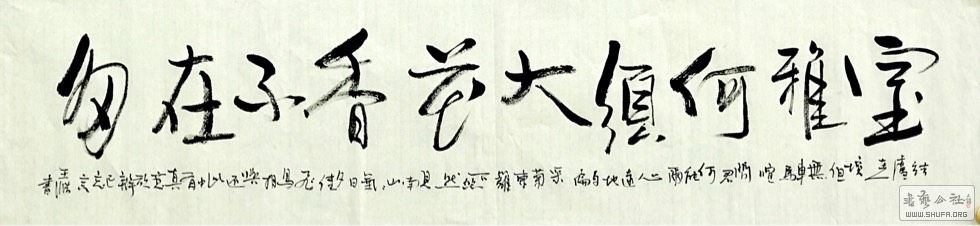 室雅何須大花香不在多
结廬在境但無車馬喧問君何能爾心遠地自偏采菊東籬下悠然見南山山氣日夕佳飛鳥相與還此中有真辨已忘言
书艺公社
WWW.SHUFA.ORG